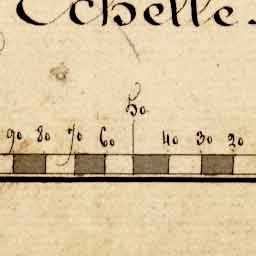 Echelle.
50
90 80 70 60 40 30 20